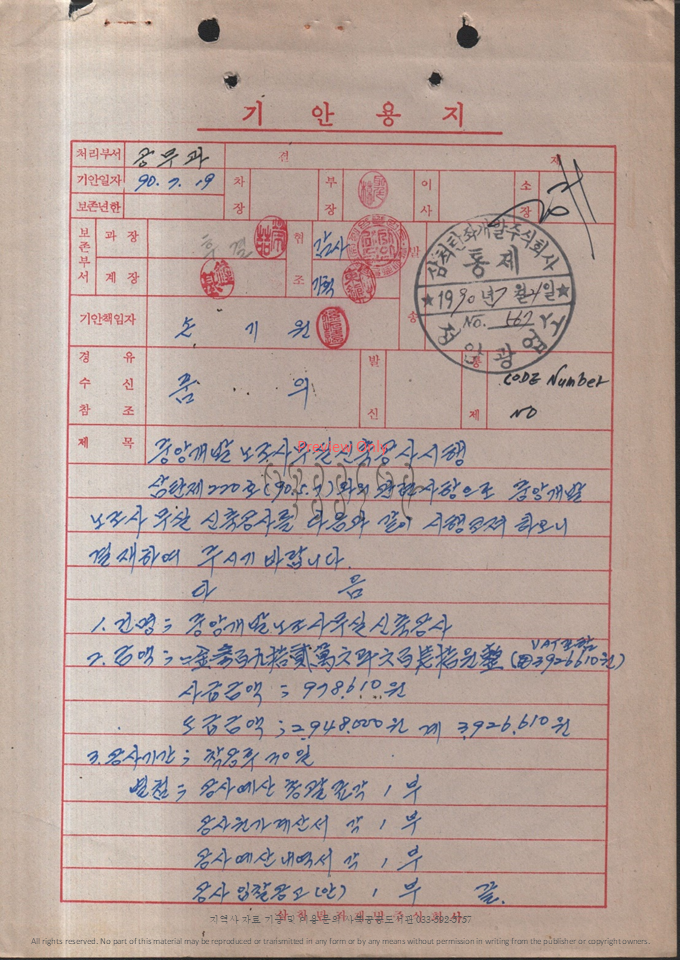 기 안 용 지
처리부서 공무과 결 재
기안일자 90. 7. 19 차장 부장 이사 소장
보존년한
보존부서 과 장 협조 감사
계 장 기획
삼척탄좌개발주식회사
통제
★1990년 7월 21일★
No. 567
정암광업소
기안책임자 손 기 원 송
경 유
수 신 품 의 발신 통제 CODE Number
참 조 NO
제 목 중앙개발 노조사무실 신축공사 시행
삼탄제220호(90.5.7)와의 관련사항으로 중앙개발
노조사무실 신축공사를 다음과 같이 시행코져 하오니
결재하여 주시기 바랍니다.
다 음
1. 건명 : 중앙개발 노조사무실 신축공사
2. 금액 : 一金參百九拾貳萬六阡六百拾원整 (₩3926610원) VAT포함
사급금액 : 978.610원
도급금액 : 2.948.000원 계 3.926.610원
3. 공사기간 : 착공후 30일
별첨 : 공사예산총괄표 각 1부
공사원가계산서 각 1부
공사예산내역서 각 1부
공사입찰공고(안) 1부 끝.
삼척탄좌개발주식회사
지역사 자료 기증 및 이용 문의 사북공공도서관 033-592-5157
Preview Only
All rights reserved. No part of this material may be reproduced or transmitted in any form or by any means without permission in writing from the publisher or copyright owners.